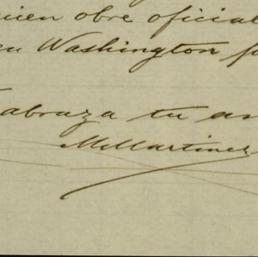 quien obre oficial
en Washington
abraza tu
MMartinez